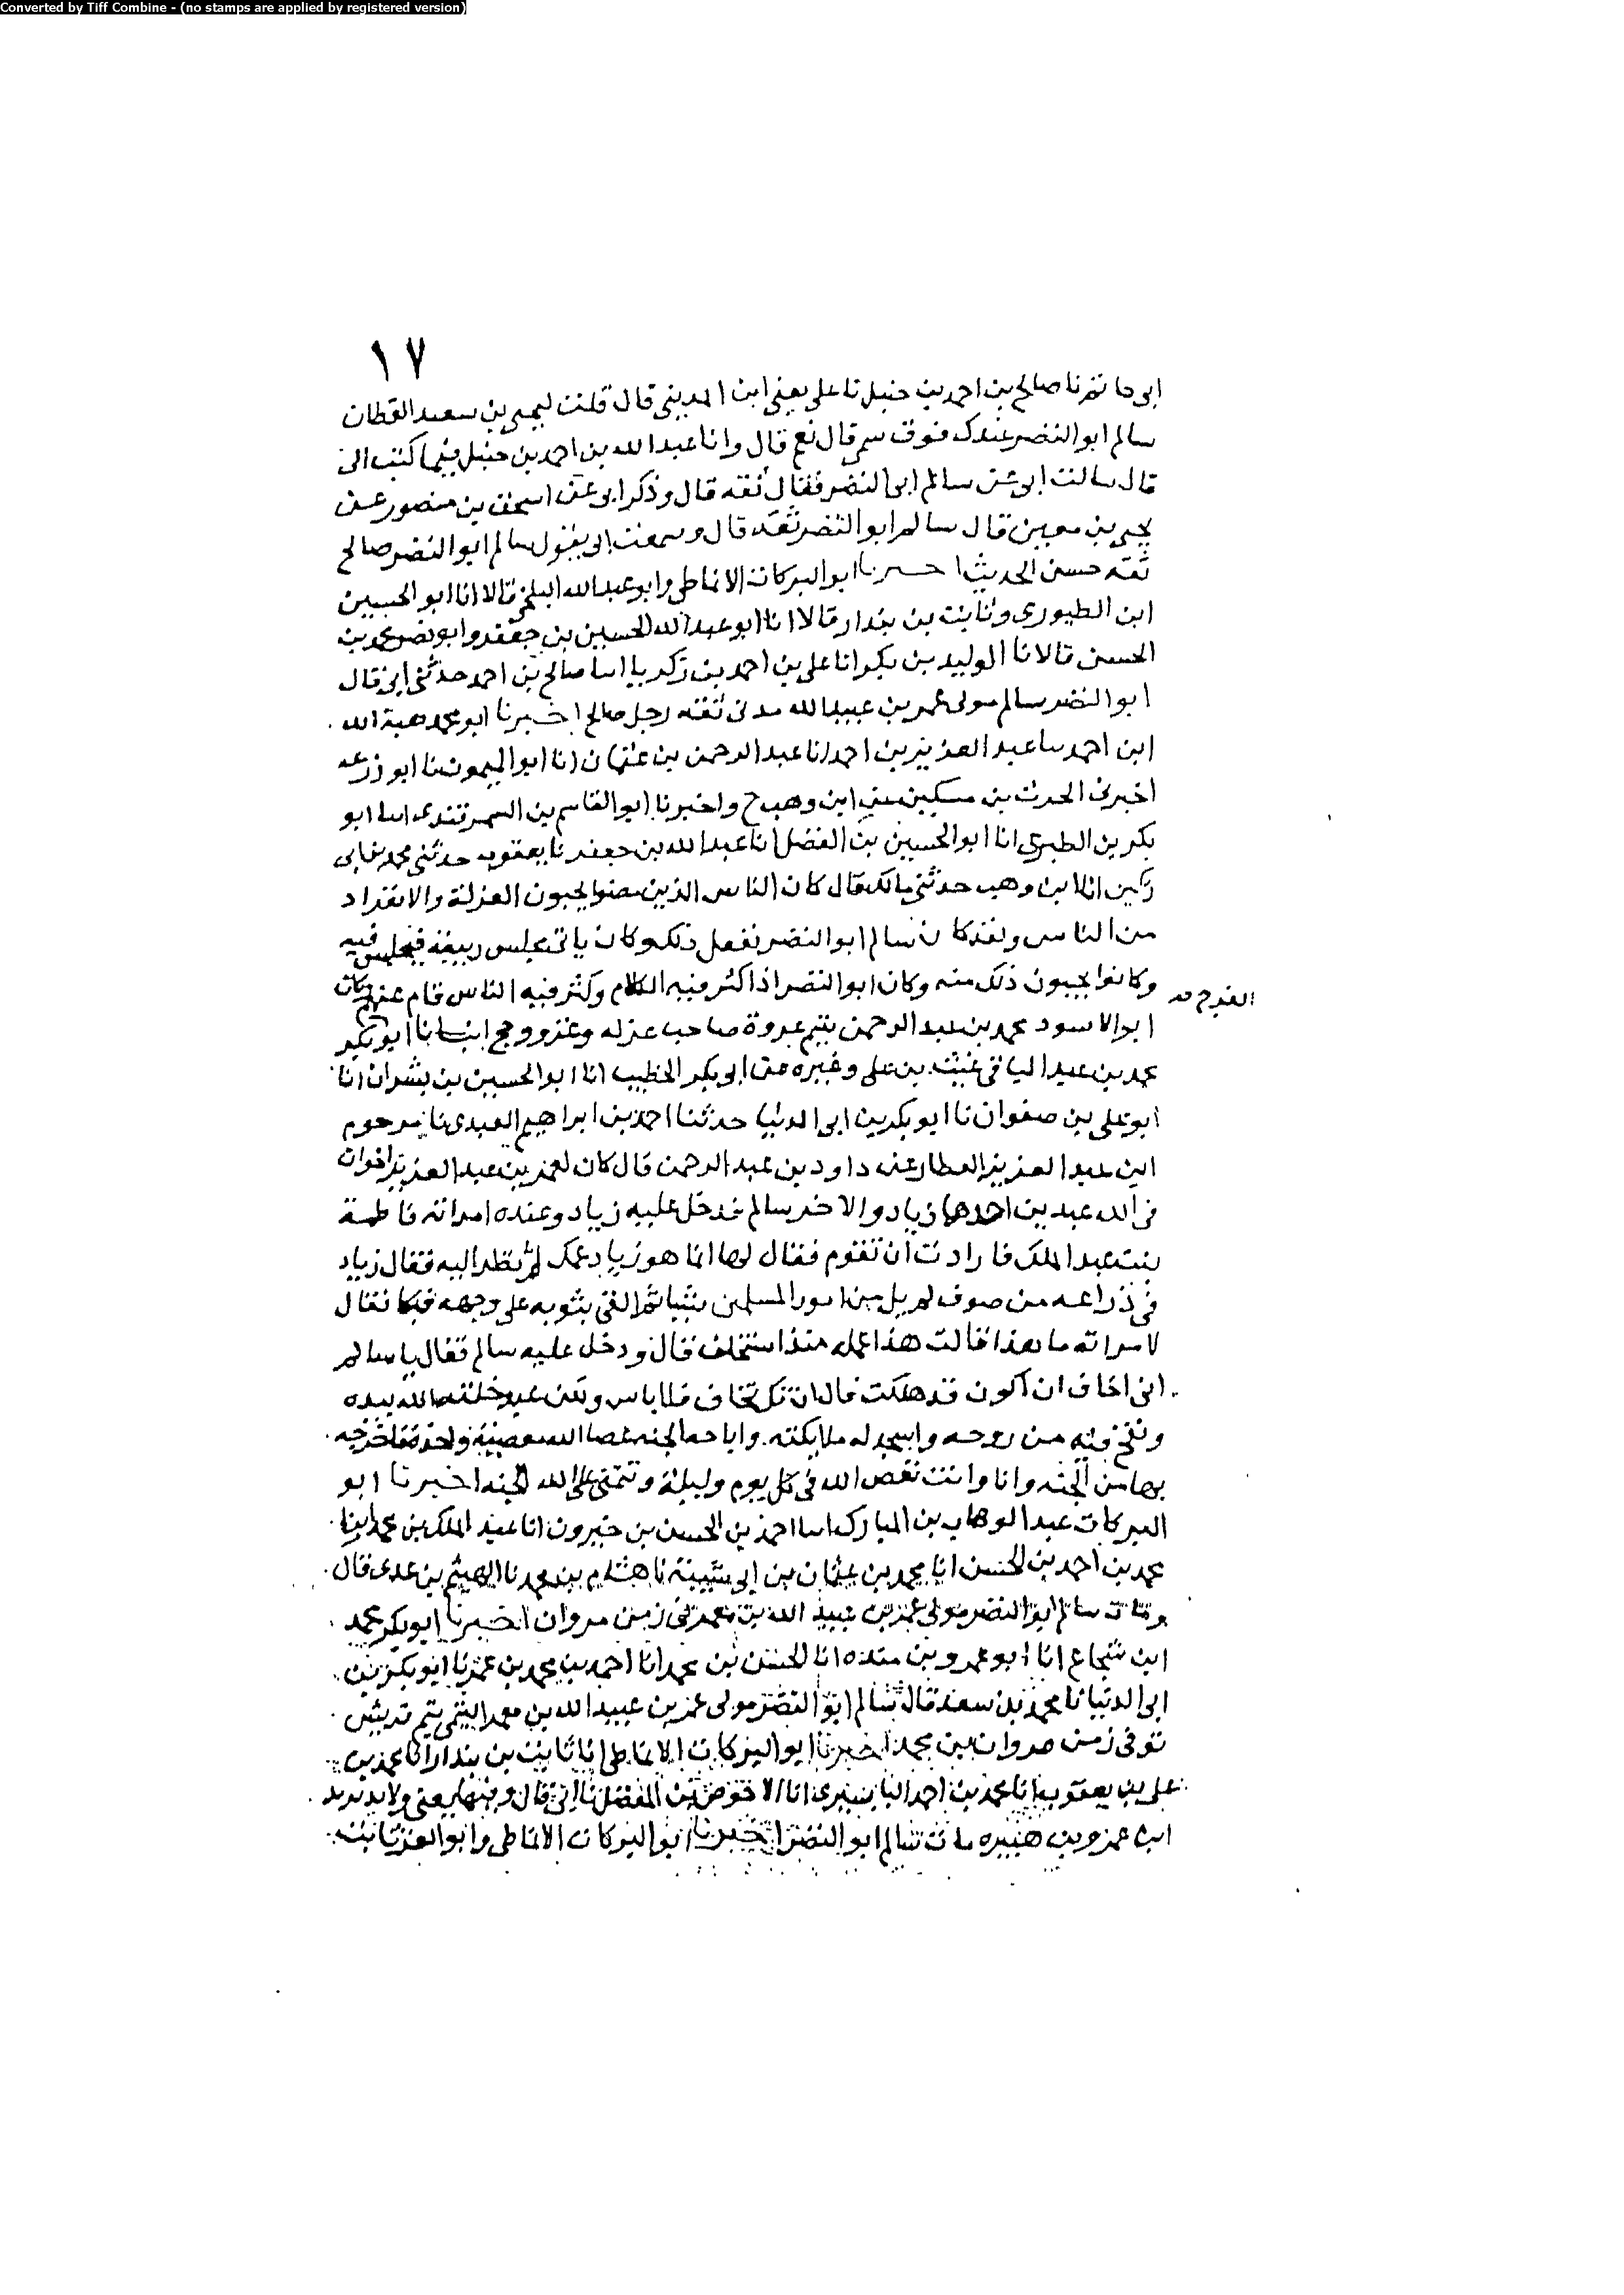 Converted by Tiff Combine - (no stamps are applied by registered version)
١٧
ابى حا تم نا صالح بن احمد بن حنبل نا على يعنى ابن المدينى قال قلت ليحيى بن سعيد القطان
سالم ابو النضر عندك فوق سمى قال نعم قال وانا عبد الله بن احمد بن حنبل فيما كتب الى
قال سالت ابى عن سالم ابى النضر فقال ثقه قال وذكر ابى عن اسحق بن منصور عن
يحيى بن معين قال سالم ابو النضر ثقه قال وسمعت ابى يقول سالم ابو النضر صالح
ثقه حسن الحديث اخبرنا ابو البركات الانماطى وابو عبد الله البلخى قالا انا ابو الحسين
ابن الطيورى وثابت بن بندار قالا انا ابو عبد الله الحسين بن جعفر وابو نصر محمد بن
الحسن قالا نا الوليد بن بكر انا على بن احمد بن زكريا انا صالح بن احمد حدثنى ابى قال
ابو النضر سالم مولى عمر بن عبيد الله مدنى ثقه رجل صالح اخبرنا ابو محمد هبة الله
ابن احمد نا عبد العزيز بن احمد انا عبد الرحمن بن عثمان انا ابو الميمون نا ابو زرعه
اخبرنى الحرث بن مسكين عن ابن وهب ح واخبرنا ابو القاسم بن السمرقندى انا ابو
بكر بن الطبرى انا ابو الحسين بن الفضل انا عبد الله بن جعفر نا يعقوب حدثنى محمد بن ابى
زكين انا ابن وهب حدثنى مالك قال كان الناس الذين مضوا يحبون العزلة والانفراد
من الناس ولقد كان سالم ابو النضر يفعل ذلك وكان ياتى مجلس ربيعة فيجلس فيه
وكانوا يحبون ذلك منه وكان ابو النضر اذا كثر فيه الكلام وكثر فيه الناس قام عنهم وكان
الفرج صح
ابو الاسود محمد بن عبد الرحمن يتيم عروة صاحب عزله وغزو وحج انبانا ابو بكر
محمد بن عبد الباقى وغيث بن على وغيره عن ابى بكر الخطيب انا ابو الحسين بن بشران انا
ابو على بن صفوان نا ابو بكر بن ابى الدنيا حدثنا احمد بن ابراهيم العبدى نا مرحوم
ابن عبد العزيز العطار عن داود بن عبد الرحمن قال كان لعمر بن عبد العزيز اخوان
فى الله عبدين احدهما زياد والاخر سالم فدخل عليه زياد وعنده امراته فاطمة
بنت عبد الملك فارادت ان تقوم فقال لها انما هو زياد عمك ثم نظر اليه فقال زياد
فى ذراعه من صوف لم يل من امور المسلمين شيئا ثم القى بثوبه على وجهه فبكا فقال
لامراته ما هذا قالت هذا عمله منذ استخلف قال ودخل عليه سالم فقال يا سالم
انى اخاف ان اكون قد هلكت قال ان تك تخاف فلا باس ولكن عبد خلقه الله بيده
ونفخ فيه من روحه واسجد له ملايكته واباحه الجنه عصا الله معصية واحدة فاخرجه
بها من الجنه وانا وانت نعص الله فى كل يوم وليلة ونتمنى على الله الجنه اخبرنا ابو
البركات عبد الوهاب بن المبارك انا احمد بن الحسن بن خيرون انا عبد الملك بن محمد انا
محمد بن احمد بن الحسن انا محمد بن عثمان بن ابى شيبة نا هشام بن محمد نا الهيثم بن عدى قال
ومات سالم ابو النضر مولى عمر بن عبيد الله بن معمر فى زمن مروان اخبرنا ابو بكر محمد
ابن شجاع انا ابو عمرو بن منده انا الحسن بن محمد انا احمد بن محمد بن عمر نا ابو بكر بن
ابى الدنيا نا محمد بن سعد قال سالم ابو النضر مولى عمر بن عبيد الله بن معمر التيمى تيم قريش
توفى زمن مروان بن محمد اخبرنا ابو البركات الانماطى انا ثابت بن بندار انا محمد بن
على بن يعقوب انا محمد بن احمد البابسيرى انا الاحوص بن المفضل نا ابى قال وفيها يعنى ولاية يزيد
ابن عمرو بن هبيره مات سالم ابو النضر اخبرنا ابو البركات الانماطى وابو العز ثابت